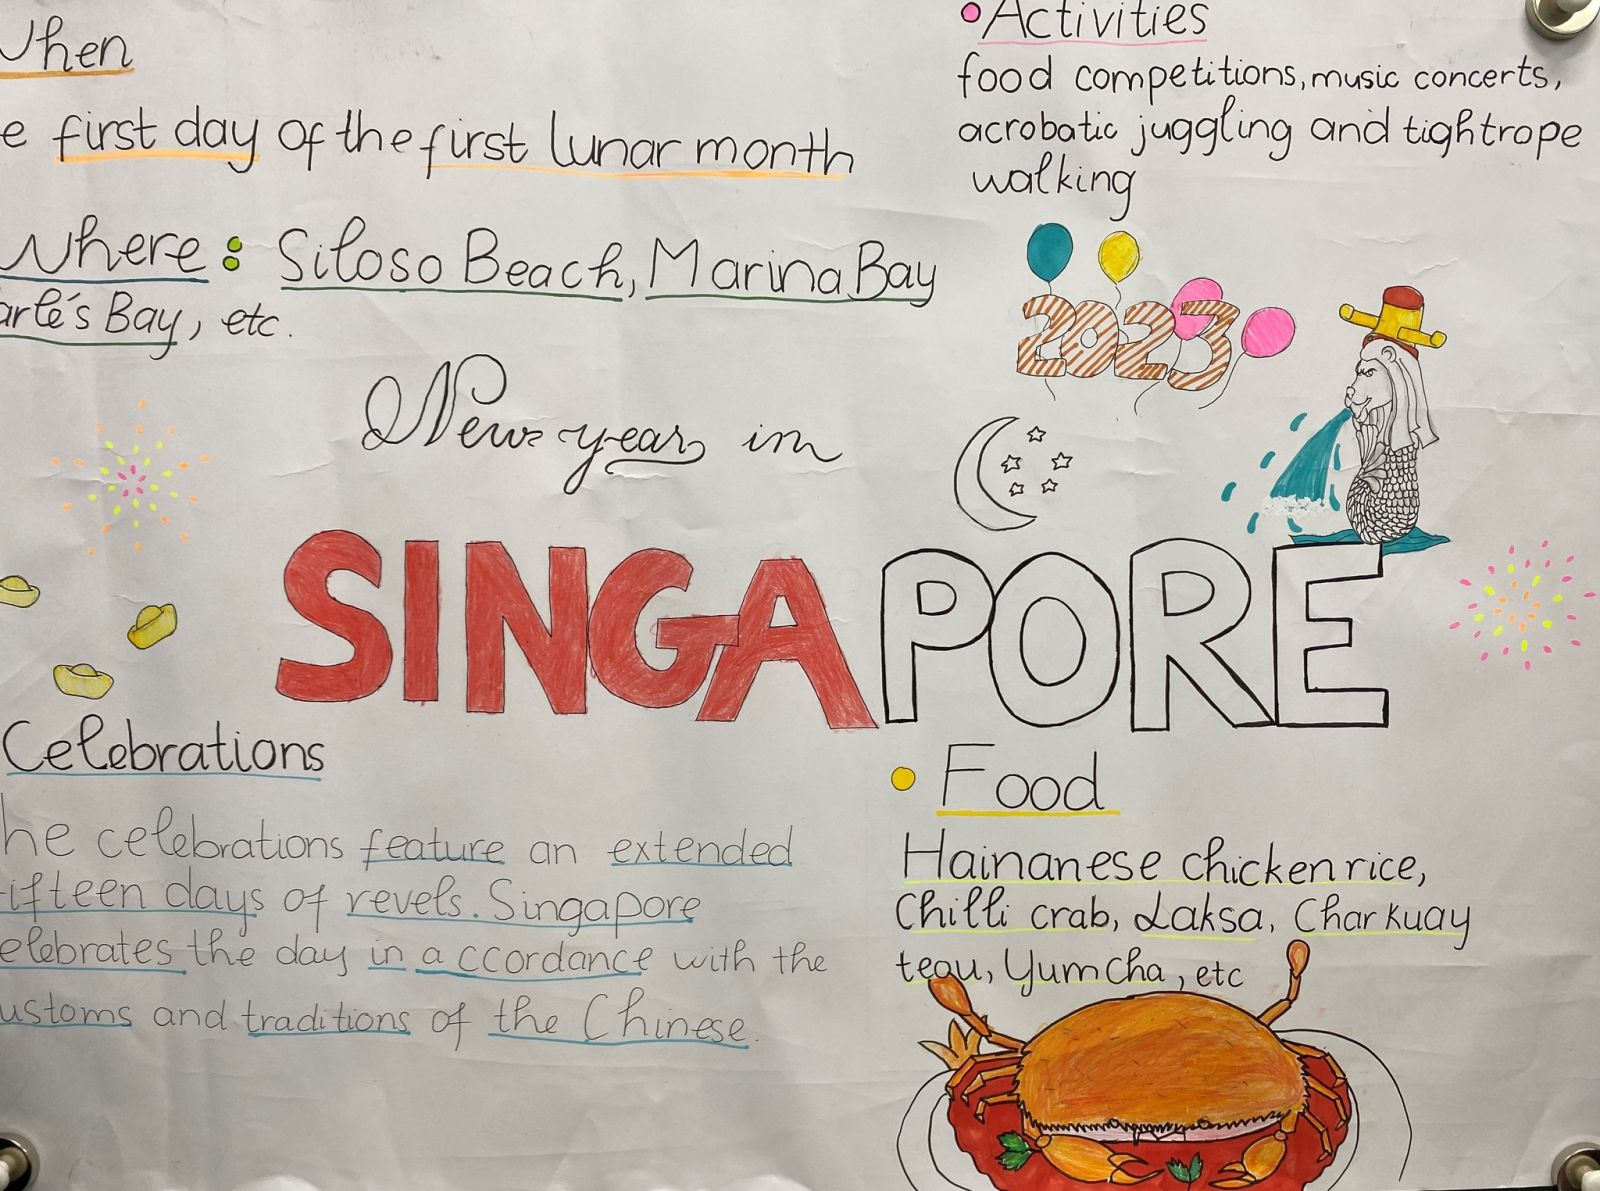 When
e first day of the first lunar month
Where: Siloso Beach, Marina Bay
arle's Bay, etc.
• Activities
food competitions, music concerts,
acrobatic juggling and tightrope
walking
2023
New year in
SINGAPORE
Celebrations
he celebrations feature an extended
fifteen days of revels. Singapore
elebrates the day in accordance with the
ustoms and traditions of the Chinese.
• Food
Hainanese chicken rice,
Chilli crab, Laksa, Char Kuay
teou, Yum Cha, etc